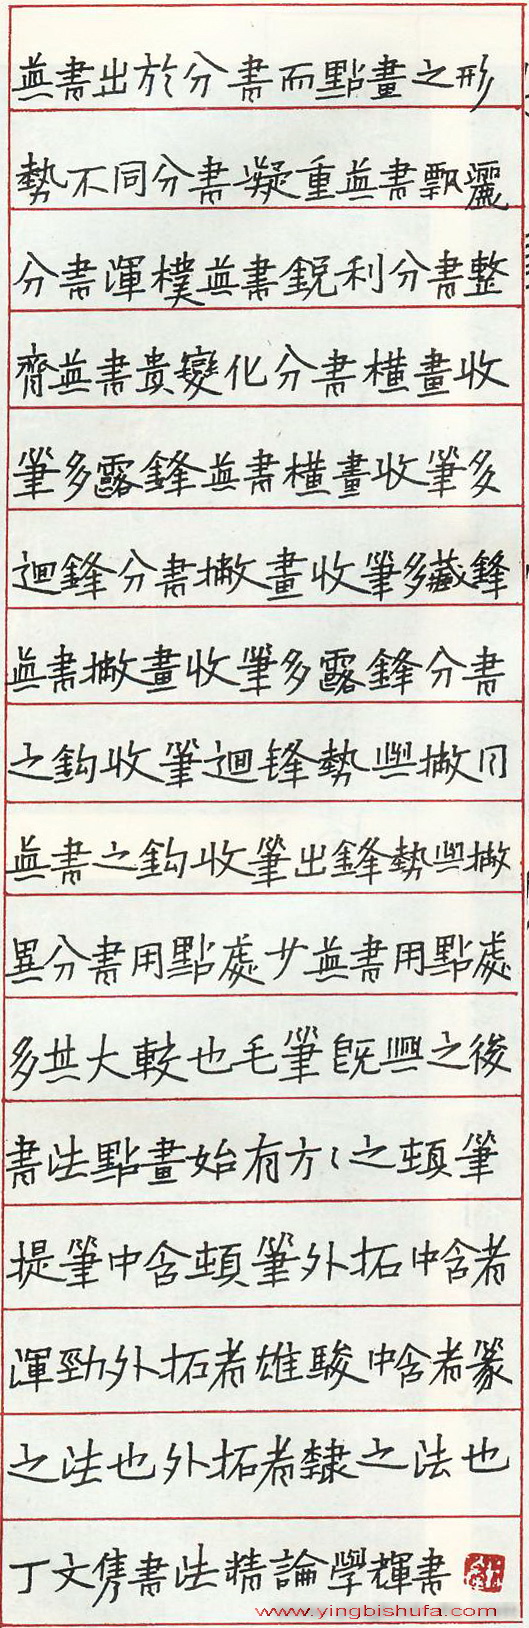 真書出於分書而點畫之形
勢不同分書凝重真書飄灑
分書渾樸真書銳利分書整
齊真書貴變化分書橫畫收
筆多露鋒真書橫畫收筆多
迴鋒分書撇畫收筆多藏鋒
真書撇畫收筆多露鋒分書
之鈎收筆迴鋒勢與撇同
真書之鈎收筆出鋒勢與撇
異分書用點處少真書用點處
多其大較也毛筆既興之後
書法點畫始有方〻之頓筆
提筆中含頓筆外拓中含者
渾勁外拓者雄駿中含者篆
之法也外拓者隸之法也
丁文雋書法精論學輝書
www.yingbishufa.com